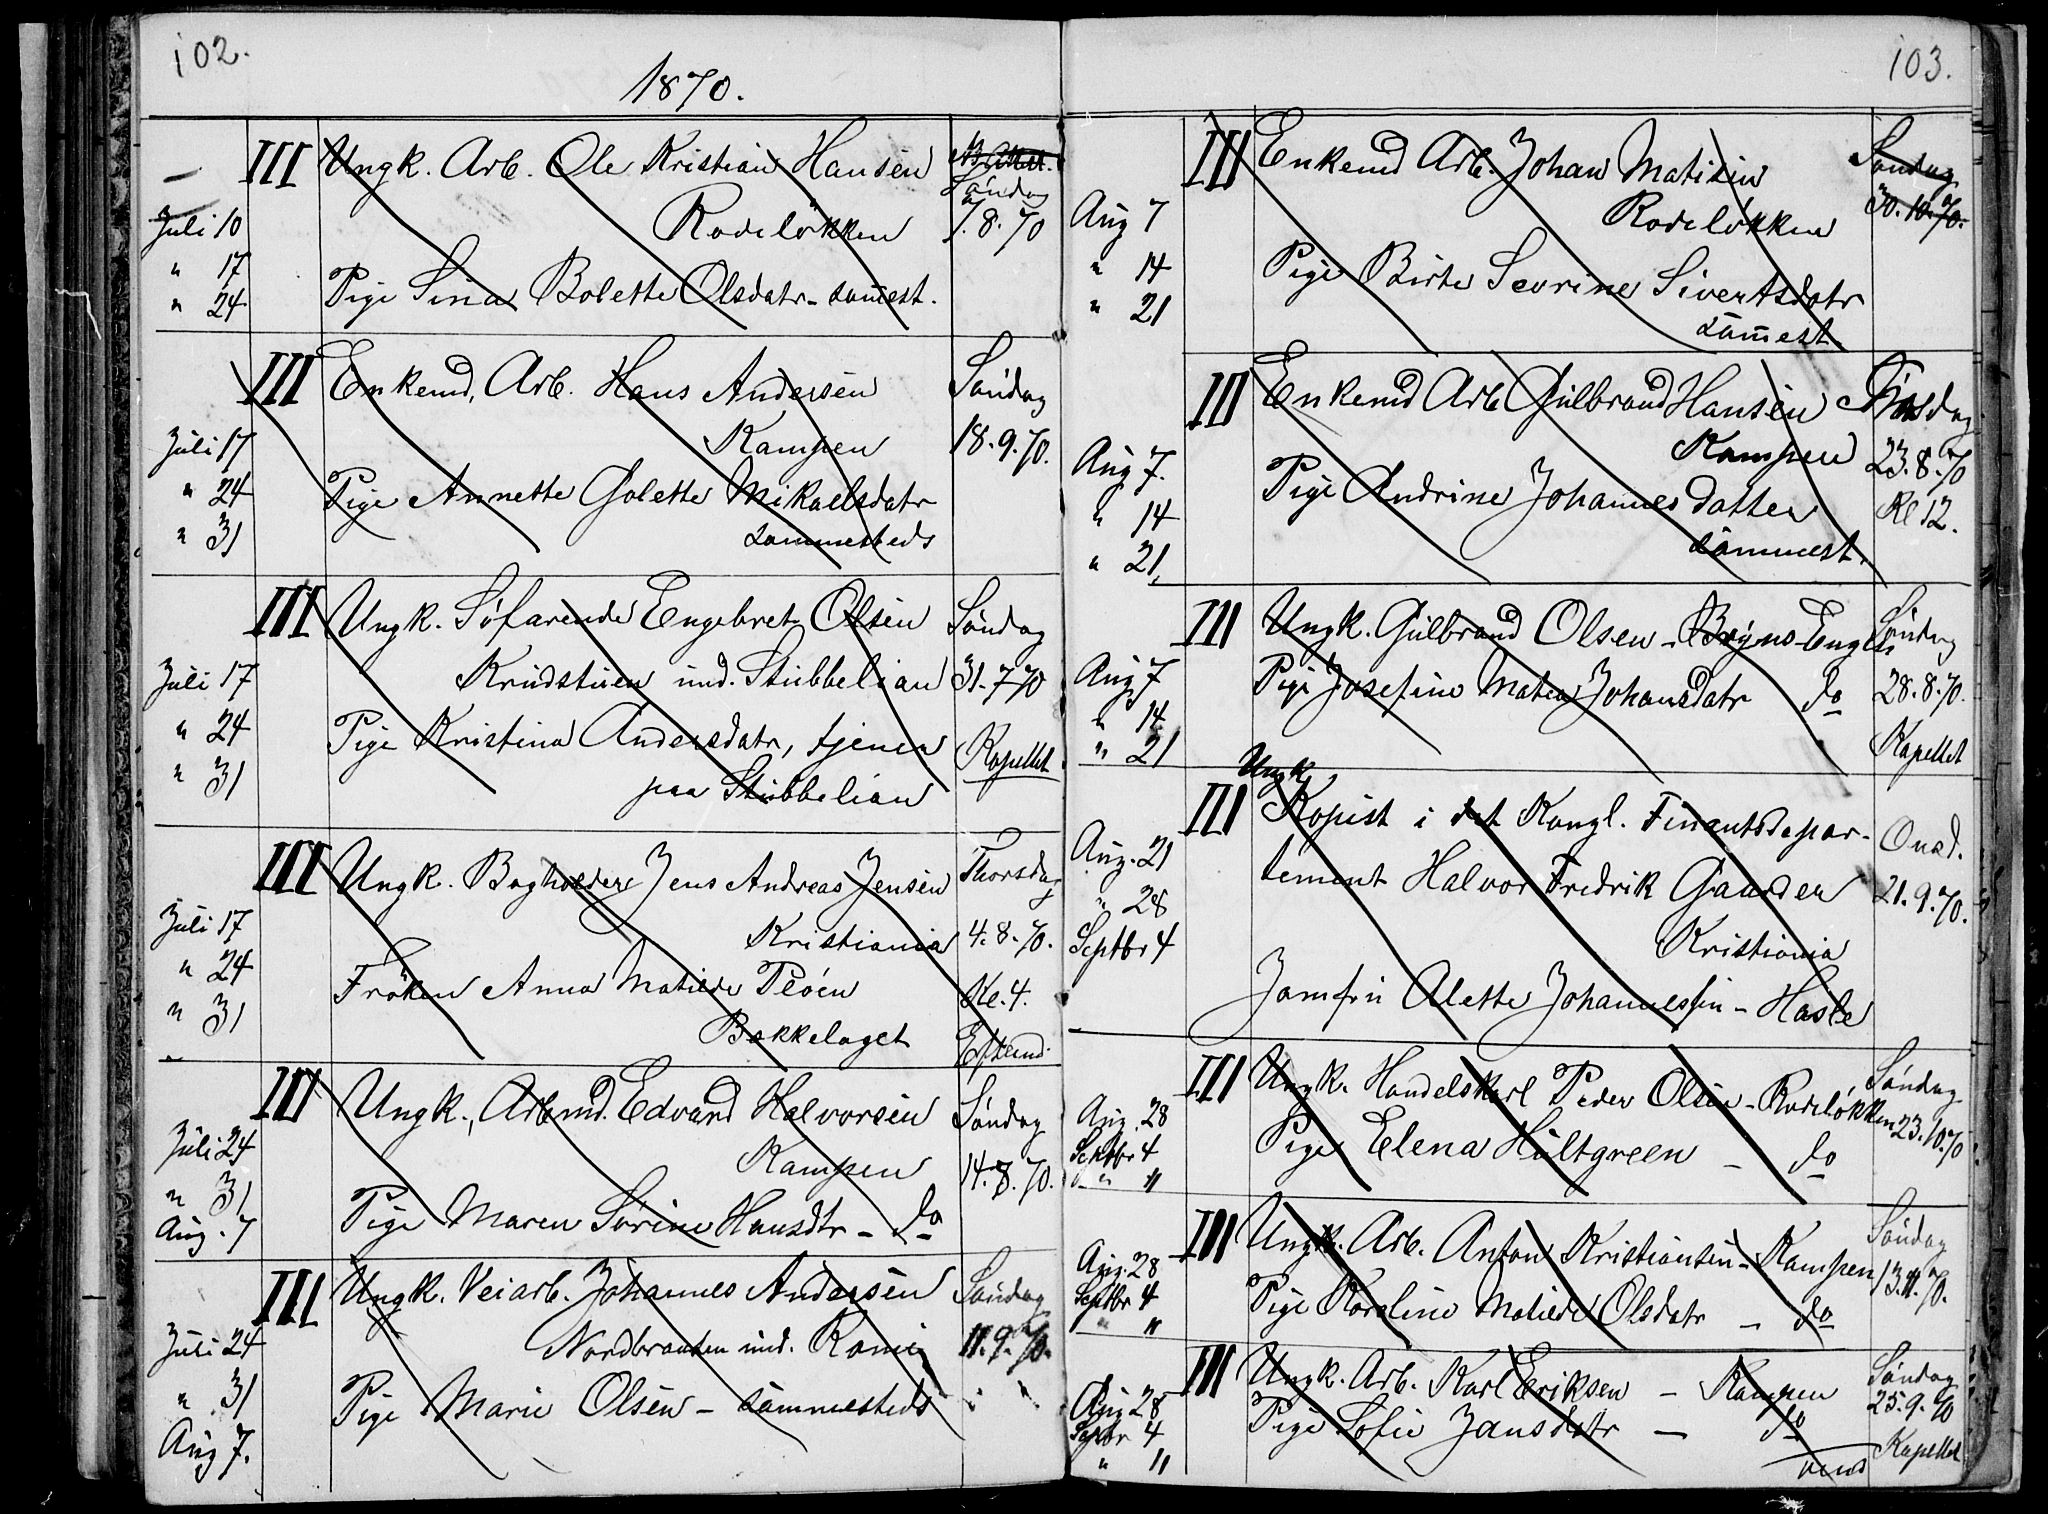 102.
1870.
III Ungk. Arb. Ole Kristian Hansen
Søndag
Juli 10 Rodeløkken 7.8.70
" 17
" 24 Pige Sina Bolette Olsdatr - sammest.
III Enkemd, Arb. Hans Andersen Søndag
Juli 17 Kampen 18.9.70.
" 24 Pige Annette Golette Mikaelsdatr
" 31 sammesteds
III Ungk. Søfarende Engebret Olsen Søndag
Juli 17 Krudstuen und. Stubbelian 31.7.70
" 24 Pige Kristina Andersdatr, tjener Kapellet
" 31 paa Stubbelian
III Ungk. Bogholder Jens Andreas Jensen Thorsdag
Juli 17 Kristiania 4.8.70.
" 24 Frøken Anna Matilde Pløen Kl. 4.
" 31 Bækkelaget Eftermd.
III Ungk., Arbmd. Edvard Halvorsen Søndag
Juli 24 Kampen 14.8.70.
" 31
Aug. 7 Pige Maren Sørine Hansdtr - do
III Ungk. Veiarb. Johannes Andersen Søndag
Juli 24 Nordbraaten und. 11.9.70.
" 31 Pige Marie Olsen - sammesteds
Aug 7.
103.
III Enkemd Arb. Johan Matisen Søndag
Aug 7 Rodeløkken 30.10.70.
" 14 Pige Birte Sevrine Sivertsdatr
" 21 sammest.
III Enkemd Arb Gulbrand Hansen Tirsdag
Aug 7. Kampen 23.8.70
" 14 Pige Andrine Johannesdatter Kl 12.
" 21, sammest.
III Ungk. Gulbrand Olsen - Bryns-Engen Søndag
Aug 7 Pige Josefine Matea Johansdatr do 28.8.70.
" 14
" 21 Kapellet
Ungk.
III Kopist i det Kongl. Finantsdepar-
Aug. 21 tement Halvor Fredrik Gaarder Onsd.
" 28 21.9.70.
Septbr 4 Kristiania
Jomfru Alette Johannessen - Hasle
III Ungk. Handelskarl Peder Olsen - Rodeløkken Søndag
Aug. 28 23.10.70
Septbr 4 Pige Elena Hultgreen - do
" 11
III Ungk. Arb. Anton Kristiansen - Kampen Søndag
Aug. 28 13.11.70.
Septbr 4 Pige Karoline Matilde Olsdatr - do
" 11
III Ungk. Arb. Karl Eriksen - Kampen Søndag
Aug 28 Pige Sofie Jansdatr - do 25.9.70
Septbr 4 Kapellet
" 11 vend